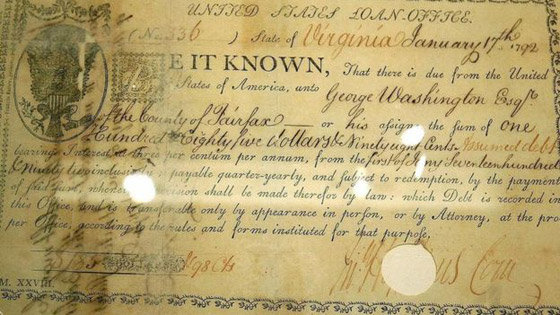 UNITED STATES LOAN-OFFICE.
(No. 336) State of Virginia January 17th 1792
BE IT KNOWN, That there is due from the United
States of America, unto George Washington Esqr
of the County of Fairfax or his assigns, the sum of one
Hundred Eighty five Dollars & Ninety eight Cents Assumed debt
bearing Interest at three per centum per annum, from the first of Seventeen hundred
& Ninety two inclusively payable quarter-yearly, and subject to redemption, by the payment
of said sum, whenever provision shall be made therefor by law: which Debt is recorded in
this Office, and is transferable only by appearance in person, or by Attorney, at the pro
per Office, according to the rules and forms instituted for that purpose.
98 Cts
M. XXVIII.